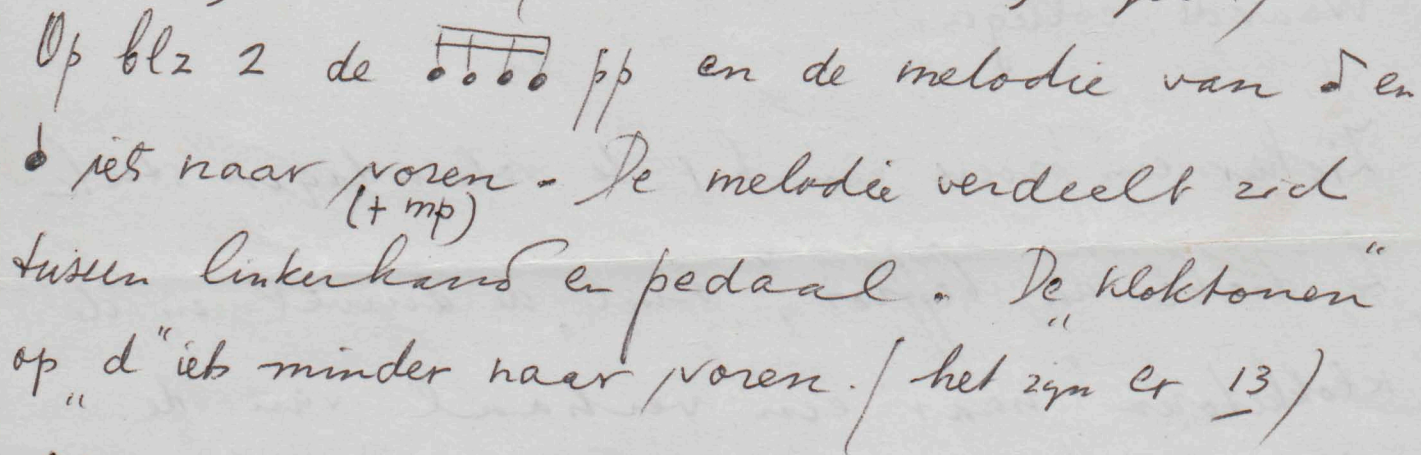 Op blz 2 de 𝅘𝅥𝅯𝅘𝅥𝅯𝅘𝅥𝅯𝅘𝅥𝅯 pp en de melodie van ♩. en
♩ iets naar voren. De melodie verdeelt zich
(± mp)
tussen linkerhand en pedaal. De „kloktonen"
op „d" iets minder naar voren. (het zijn er 13)